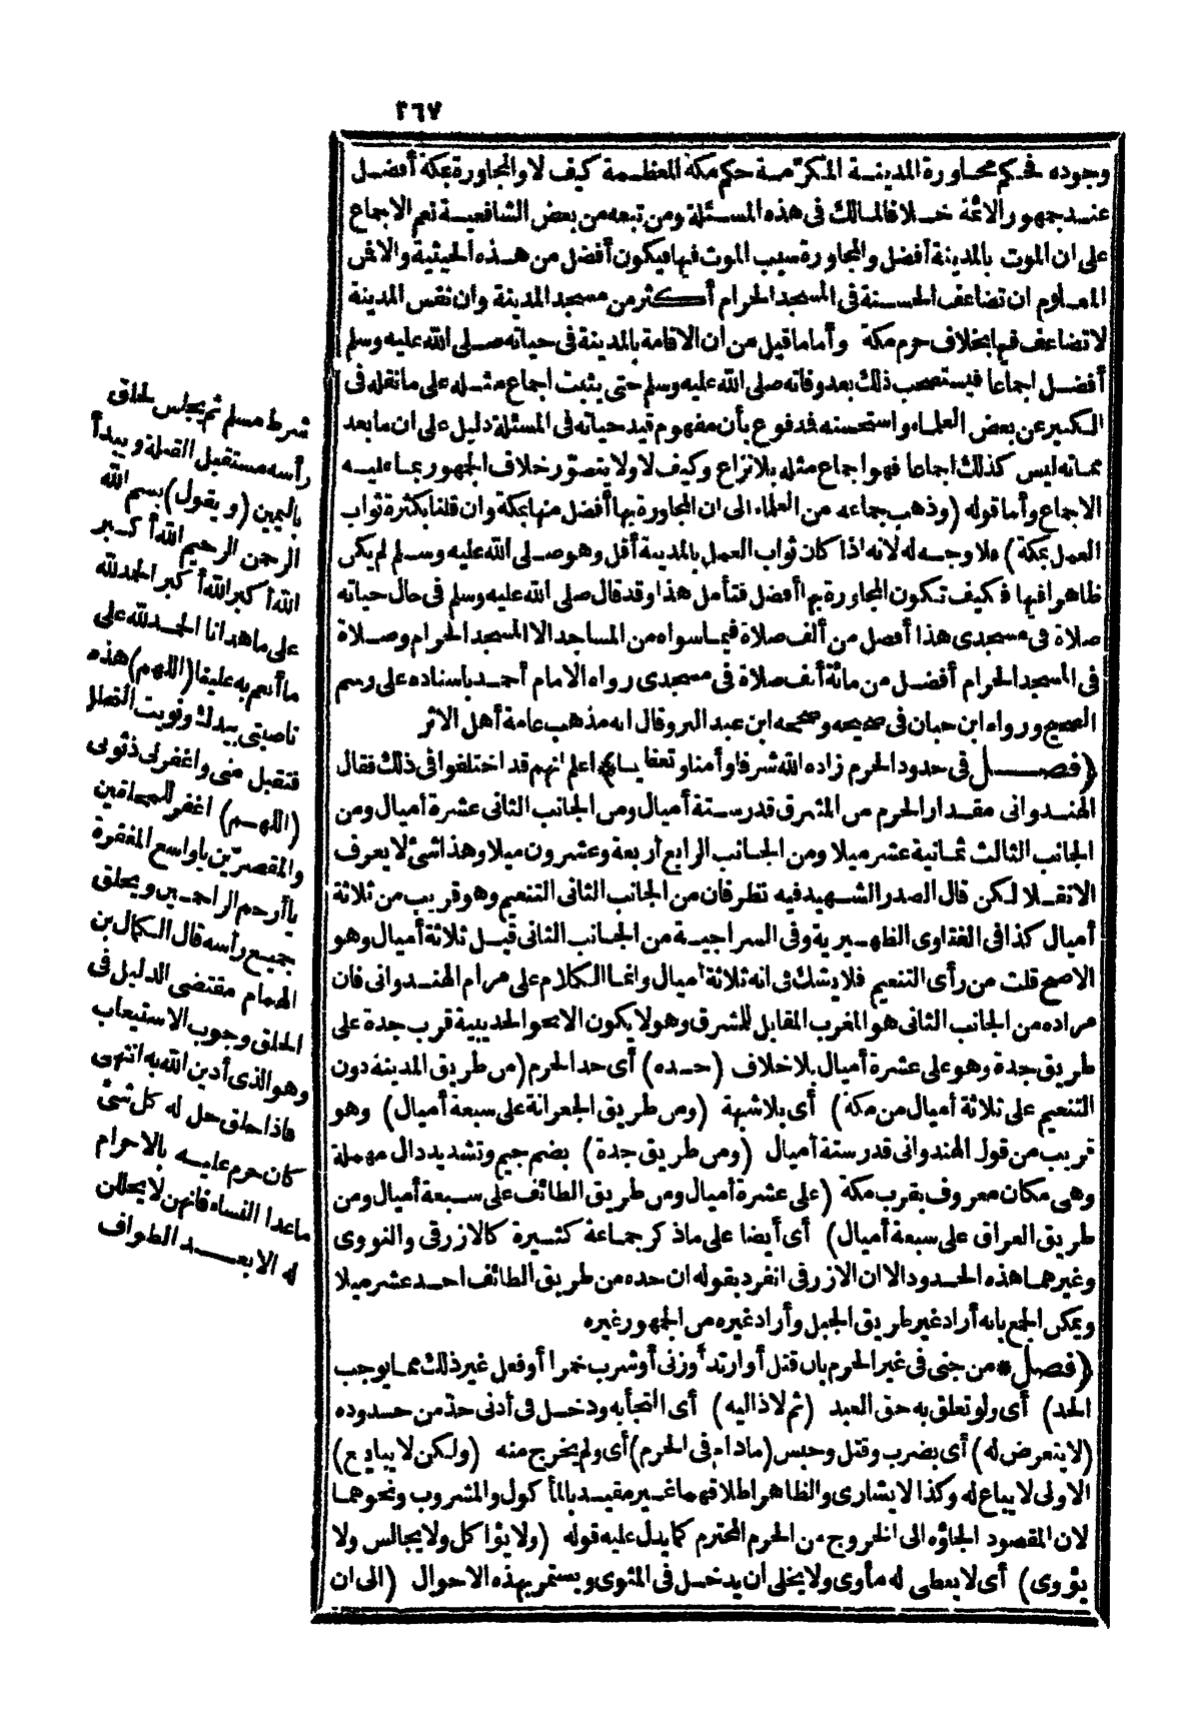 ٢٦٧
وجوده فحكم مجاورة المدينة المكرّمة حكم مكة المعظمة كيف لا والمجاورة بمكة أفضل
عند جمهور الائمة خلافا لمالك فى هذه المسئلة ومن تبعه من بعض الشافعية نعم الاجماع
على ان الموت بالمدينة أفضل والمجاورة سبب الموت فيها فيكون أفضل من هذه الحيثية والا فمن
المعلوم ان تضاعف الحسنة فى المسجد الحرام أكثر من مسجد المدينة وان نفس المدينة
لا تضاعف فيها بخلاف حرم مكة وأما ما قيل من ان الاقامة بالمدينة فى حياته صلى الله عليه وسلم
أفضل اجماعا فيستصحب ذلك بعد وفاته صلى الله عليه وسلم حتى يثبت اجماع مثله على ما نقله فى
الكبير عن بعض العلماء واستحسنه فدفوع بأن مفهوم قيد حياته فى المسئلة دليل على ان ما بعد
مماته ليس كذلك اجماعا فهو اجماع مثله بلا نزاع وكيف لا ولا يتصوّر خلاف الجمهور بما عليه
الاجماع وأما قوله (وذهب جماعة من العلماء الى ان المجاورة بها أفضل منها بمكة وان قلنا بكثرة ثواب
العمل بمكة) فلا وجه له لانه اذا كان ثواب العمل بالمدينة أقل وهو صلى الله عليه وسلم لم يكن
ظاهرا فيها فكيف تكون المجاورة بها أفضل فتأمل هذا وقد قال صلى الله عليه وسلم فى حال حياته
صلاة فى مسجدى هذا أفضل من ألف صلاة فيما سواه من المساجد الا المسجد الحرام وصلاة
فى المسجد الحرام أفضل من مائة ألف صلاة فى مسجدى رواه الامام أحمد باسناده على رسم
الصحيح ورواه ابن حبان فى صحيحه وصححه ابن عبد البر وقال انه مذهب عامة أهل الاثر
(فصل فى حدود الحرم زاده الله شرفا وأمنا وتعظيما) اعلم انهم قد اختلفوا فى ذلك فقال
الهندوانى مقدار الحرم من المشرق قدر ستة أميال ومن الجانب الثانى عشرة أميال ومن
الجانب الثالث ثمانية عشر ميلا ومن الجانب الرابع أربعة وعشرون ميلا وهذا شئ لا يعرف
الا نقلا لكن قال الصدر الشهيد فيه نظر فان من الجانب الثانى التنعيم وهو قريب من ثلاثة
أميال كذا فى الفتاوى الظهيرية وفى السراجية من الجانب الثانى قيل ثلاثة أميال وهو
الاصح قلت من رأى التنعيم فلا يشك فى انه ثلاثة أميال وانما الكلام على مرام الهندوانى فان
مراده من الجانب الثانى هو المغرب المقابل للمشرق وهو لا يكون الا نحو الحديبية قرب جدة على
طريق جدة وهو على عشرة أميال بلا خلاف (حده) أى حد الحرم (من طريق المدينة دون
التنعيم على ثلاثة أميال من مكة) أى بلا شبهة (ومن طريق الجعرانة على سبعة أميال) وهو
قريب من قول الهندوانى قدر ستة أميال (ومن طريق جدة) بضم جيم وتشديد دال مهملة
وهى مكان معروف بقرب مكة (على عشرة أميال ومن طريق الطائف على سبعة أميال ومن
طريق العراق على سبعة أميال) أى أيضا على ما ذكر جماعة كثيرة كالازرقى والنووى
وغيرهما هذه الحدود الا ان الازرقى انفرد بقوله ان حده من طريق الطائف احد عشر ميلا
ويمكن الجمع بانه أراد غير طريق الجبل وأراد غيره من الجمهور غيره
(فصل* من جنى فى غير الحرم بان قتل أو ارتد أو زنى أو شرب خمرا أو فعل غير ذلك مما يوجب
الحد) أى ولو تعلق به حق العبد (ثم لاذ اليه) أى التجأ به ودخل فى أدنى حدّ من حدوده
(لا يتعرض له) أى بضرب وقتل وحبس (مادام فى الحرم) أى ولم يخرج منه (ولكن لا يبايع)
الاولى لا يباع له وكذا لا يشارى والظاهر اطلاقهما غير مقيد بالمأكول والمشروب ونحوهما
لان المقصود الجاؤه الى الخروج من الحرم المحترم كما يدل عليه قوله (ولا يؤاكل ولا يجالس ولا
يؤوى) أى لا يعطى له مأوى ولا يخلى أن يدخل فى المثوى ويستمر بهذه الاحوال (الى ان
شرط مسلم ثم يجلس لحلق
رأسه مستقبل القبلة ويبدأ
باليمين (ويقول) بسم الله
الرحمن الرحيم الله أكبر
الله أكبر الله أكبر الحمد لله
على ما هدانا الحمد لله على
ما أنعم به علينا (اللهم) هذه
ناصيتى بيدك ونويت التحلل
فتقبل منى واغفر لى ذنوبى
(اللهم) اغفر للمحلقين
والمقصرين يا واسع المغفرة
يا أرحم الراحمين ويحلق
جميع رأسه قال الكمال بن
الهمام مقتضى الدليل فى
الحلق وجوب الاستيعاب
وهو الذى أدين الله به انتهى
فاذا حلق حل له كل شئ
كان حرم عليه بالاحرام
ماعدا النساء فانهن لا يحللن
له الا بعد الطواف